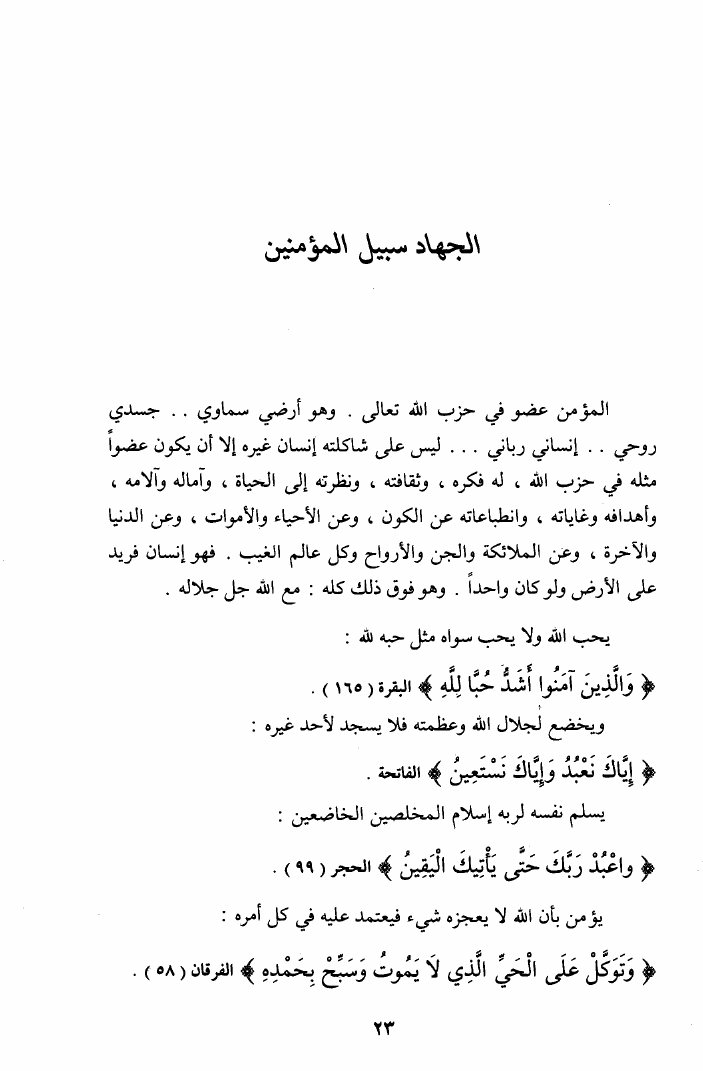 الجهاد سبيل المؤمنين
المؤمن عضو في حزب الله تعالى . وهو أرضي سماوي . . جسدي
روحي . . إنساني رباني . . . ليس على شاكلته إنسان غيره إلا أن يكون عضواً
مثله في حزب الله ، له فكره ، وثقافته ، ونظرته إلى الحياة ، وآماله وآلامه ،
وأهدافه وغاياته ، وانطباعاته عن الكون ، وعن الأحياء والأموات ، وعن الدنيا
والآخرة ، وعن الملائكة والجن والأرواح وكل عالم الغيب . فهو إنسان فريد
على الأرض ولو كان واحداً . وهو فوق ذلك كله : مع الله جل جلاله .
يحب الله ولا يحب سواه مثل حبه لله :
﴿ وَالَّذِينَ آمَنُوا أَشَدُّ حُبًّا لِلَّهِ ﴾ البقرة ( ١٦٥ ) .
ويخضع لجلال الله وعظمته فلا يسجد لأحد غيره :
﴿ إِيَّاكَ نَعْبُدُ وَإِيَّاكَ نَسْتَعِينُ ﴾ الفاتحة .
يسلم نفسه لربه إسلام المخلصين الخاضعين :
﴿ واعْبُدْ رَبَّكَ حَتَّى يَأْتِيكَ الْيَقِينُ ﴾ الحجر ( ٩٩ ) .
يؤمن بأن الله لا يعجزه شيء فيعتمد عليه في كل أمره :
﴿ وَتَوَكَّلْ عَلَى الْحَيِّ الَّذِي لَا يَمُوتُ وَسَبِّحْ بِحَمْدِهِ ﴾ الفرقان ( ٥٨ ) .
٢٣